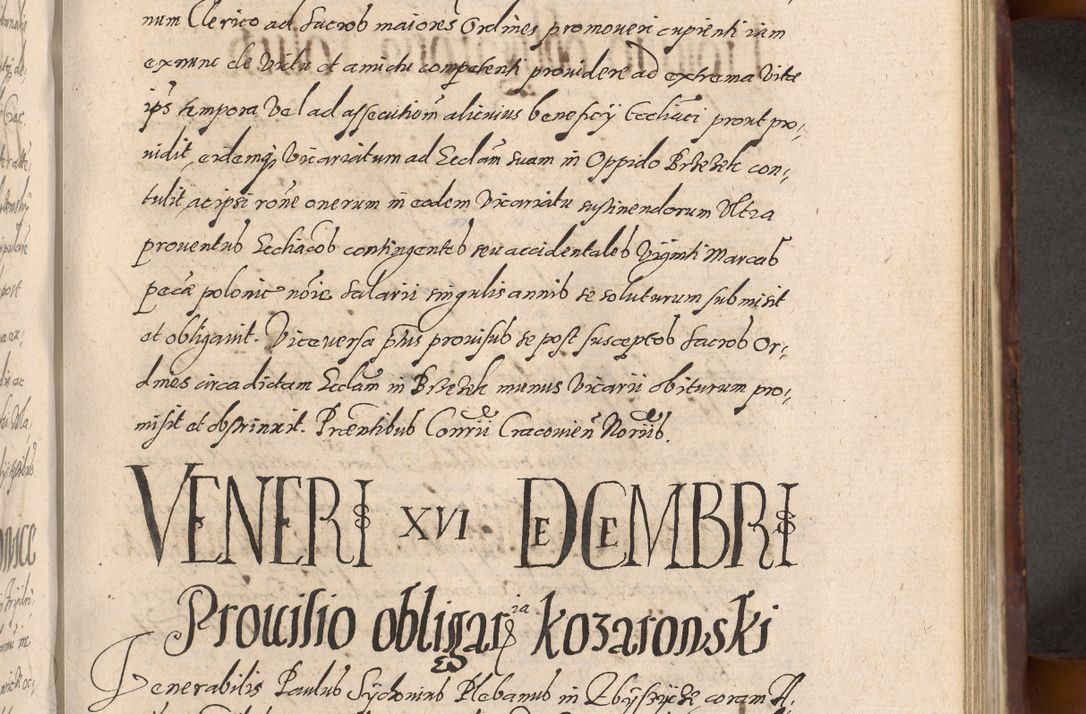 num Clerico ad sacros maiores Ordines promoveri cupienti iam
exnunc de Victu et amictu competenti providere ad extrema Vitæ
ip̃s tempora Vel ad assecutiõm alicuius beneficy Eccliãci prout pro,
uidit, eidemq̃ Vicariatum ad Eccl̃am suam in Oppido Brzezek con,
tulit, ac ipsi rõne onerum in eodem Vicariatu sustinendorum Ultra
prouentus Eccliãcos contingentes seu accidentales Viginti Marcas
pecũ polonic nõie Salarii singulis annis se soluturum submisit
et obligauit. Viceversa p̃tus provisus se post susceptos sacros Or,
dines circa dictam Eccl̃am in Brzezek munus Vicarii obiturum pro,
misit et obstrinxit. Præsentibus Consrii Cracovien̄ Noriis.
VENERIS XVI DECEMBRIS
Prouisio obligatria kozarowski
Venerabilis Paulus Sychonius Plebanus in Zbyszycze coram A,